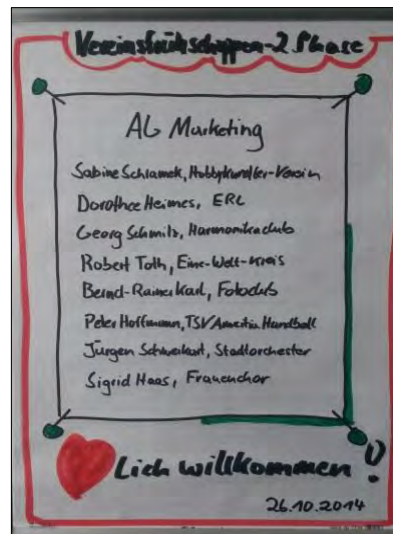 Vereinsfrühschoppen-2. Phase
AG Marketing
Sabine Schlamek, Hobbykünstler-Verein
Dorothee Heimes, ERC
Georg Schmitz, Harmonikaclub
Robert Toth, Eine-Welt-Kreis
Bernd-Rainer Karl, Fotoclub
Peter Hoffmann, TSV Amicitia Handball
Jürgen Schweikart, Stadtorchester
Sigrid Haas, Frauenchor
Lich willkommen!
26.10.2014